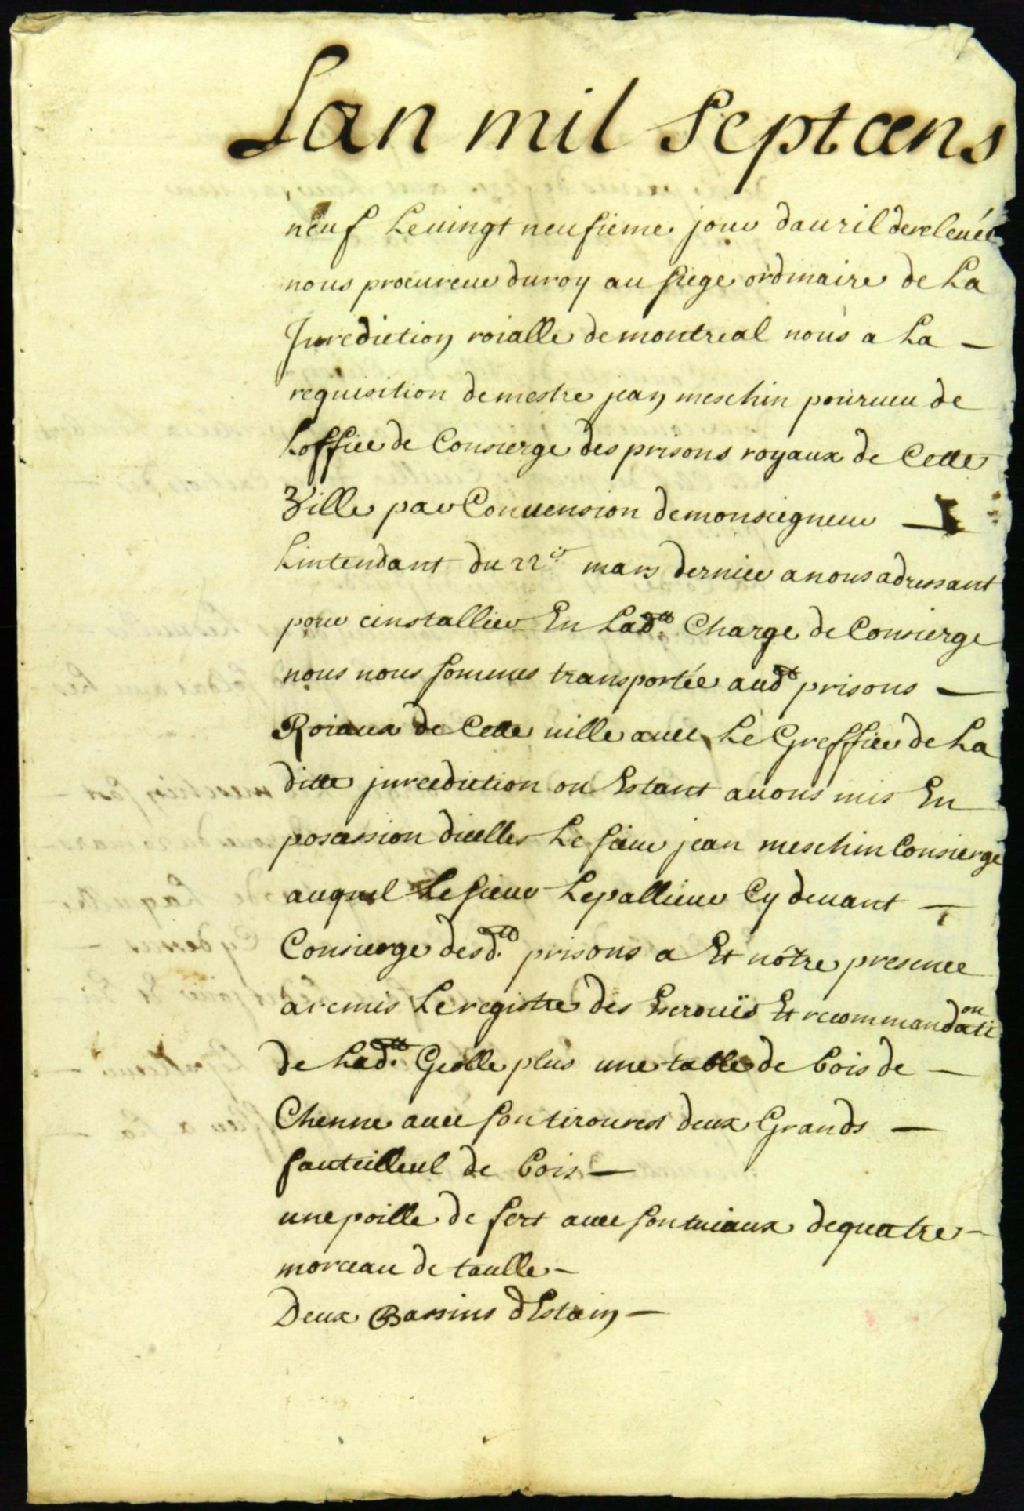 Lan mil Septcens
neuf Le vingt neufieme jour dauril de releuée
nous procureur du roy au siege ordinaire de La
Jurediction roialle de montreal nous a La —
requisition de mestre jean meschin pourueu de
Loffice de Consierge des prisons royaux de Cette
Ville par Conuension de monseigneur —
Lintendant du 22e mars dernier a nous adressant
pour linstallier En Lad.te Charge de Consierge
nous nous sommes transportée aud.t prisons —
Roiaux de Cette uille auec Le Greffier de La
ditte jurediction ou Estant auons mis En
posession dicelles Le sieur jean meschin Consierge
auquel Le sieur Lepallieur Cy deuant —
Consierge desd.tes prisons a Et nôtre presence
a remis Le registre des Escrouës Et recommandation
de Lad.te Geolle plus une table de bois de —
Chenne auec son tirouert deux Grands —
fauteilleul de bois —
une poille de fert auec son tuiaux de quatre —
morceau de taulle —
Deux Bassins d'Estain —